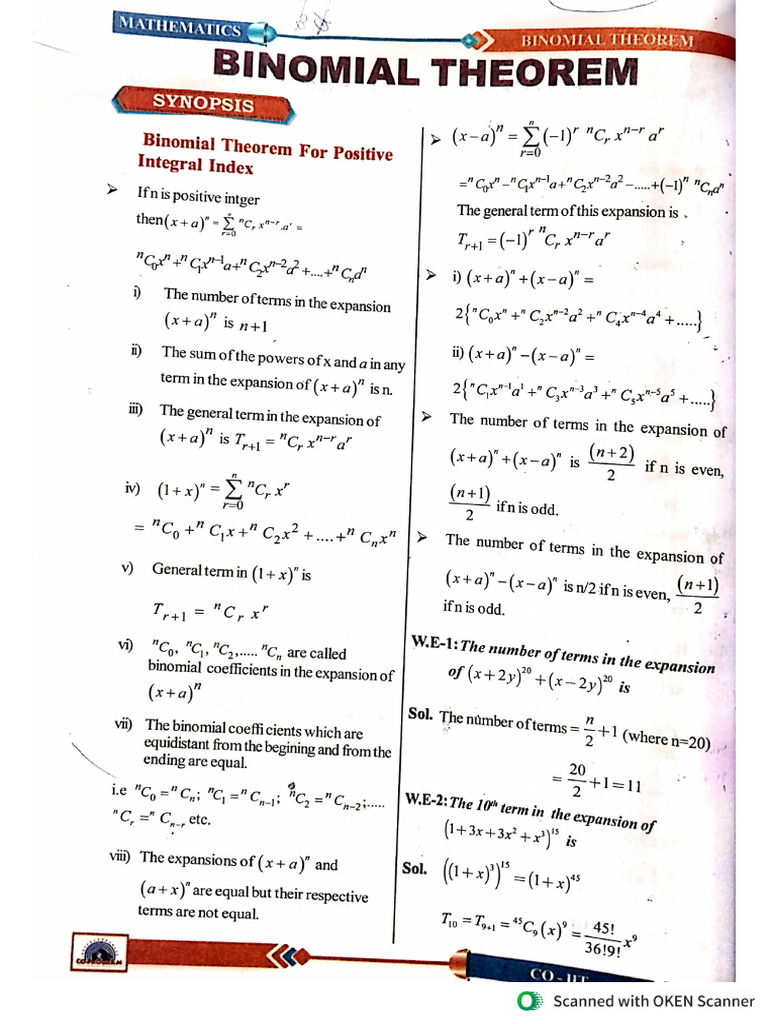 MATHEMATICS
BINOMIAL THEOREM
BINOMIAL THEOREM
SYNOPSIS
Binomial Theorem For Positive
Integral Index
➤ If n is positive intger
then (x+a)ⁿ = Σ_{r=0}^{n} ⁿC_r x^{n−r}.a^r =
ⁿC₀xⁿ+ⁿC₁x^{n−1}a+ⁿC₂x^{n−2}a²+....+ⁿCₙaⁿ
i) The number of terms in the expansion
(x+a)ⁿ is n+1
ii) The sum of the powers of x and a in any
term in the expansion of (x+a)ⁿ is n.
iii) The general term in the expansion of
(x+a)ⁿ is T_{r+1} = ⁿC_r x^{n−r}a^r
iv) (1+x)ⁿ = Σ_{r=0}^{n} ⁿC_r x^r
= ⁿC₀+ⁿC₁x+ⁿC₂x²+....+ⁿCₙxⁿ
v) General term in (1+x)ⁿ is
T_{r+1} = ⁿC_r x^r
vi) ⁿC₀, ⁿC₁, ⁿC₂,.....ⁿCₙ are called
binomial coefficients in the expansion of
(x+a)ⁿ
vii) The binomial coeffi cients which are
equidistant from the begining and from the
ending are equal.
i.e ⁿC₀=ⁿCₙ; ⁿC₁=ⁿC_{n−1}; ⁿC₂=ⁿC_{n−2};.....
ⁿC_r=ⁿC_{n−r} etc.
viii) The expansions of (x+a)ⁿ and
(a+x)ⁿ are equal but their respective
terms are not equal.
➤ (x−a)ⁿ = Σ_{r=0}^{n} (−1)^r ⁿC_r x^{n−r} a^r
=ⁿC₀xⁿ−ⁿC₁x^{n−1}a+ⁿC₂x^{n−2}a²−.....+(−1)ⁿ ⁿCₙaⁿ
The general term of this expansion is ,
T_{r+1} = (−1)^r ⁿC_r x^{n−r}a^r
➤ i) (x+a)ⁿ+(x−a)ⁿ =
2{ⁿC₀xⁿ+ⁿC₂x^{n−2}a²+ⁿC₄x^{n−4}a⁴+.....}
ii) (x+a)ⁿ−(x−a)ⁿ =
2{ⁿC₁x^{n−1}a¹+ⁿC₃x^{n−3}a³+ⁿC₅x^{n−5}a⁵+.....}
➤ The number of terms in the expansion of
(x+a)ⁿ+(x−a)ⁿ is (n+2)/2 if n is even,
(n+1)/2 if n is odd.
➤ The number of terms in the expansion of
(x+a)ⁿ−(x−a)ⁿ is n/2 if n is even, (n+1)/2
if n is odd.
W.E-1: The number of terms in the expansion
of (x+2y)²⁰+(x−2y)²⁰ is
Sol. The number of terms = n/2 +1 (where n=20)
= 20/2 +1=11
W.E-2: The 10th term in the expansion of
(1+3x+3x²+x³)¹⁵ is
Sol. ((1+x)³)¹⁵ = (1+x)⁴⁵
T₁₀ = T₉₊₁ = ⁴⁵C₉(x)⁹ = 45!/36!9! x⁹
Scanned with OKEN Scanner